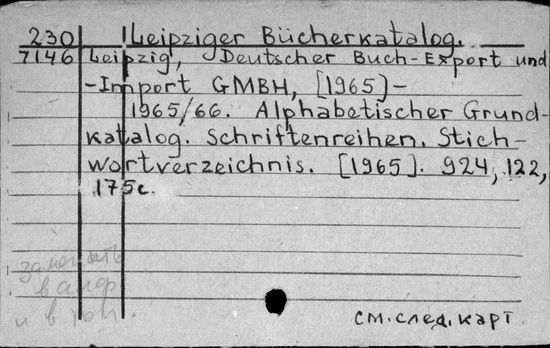 230 Leipziger Bücherkatalog.
7146 Leipzig, Deutscher Buch-Export und
-Import GMBH, [1965]-
1965/66. Alphabetischer Grund-
katalog. Schriftenreihen. Stich-
wortverzeichnis. [1965]. 924, 122,
175c.
заменить
в алф
и в
см. след. карт.